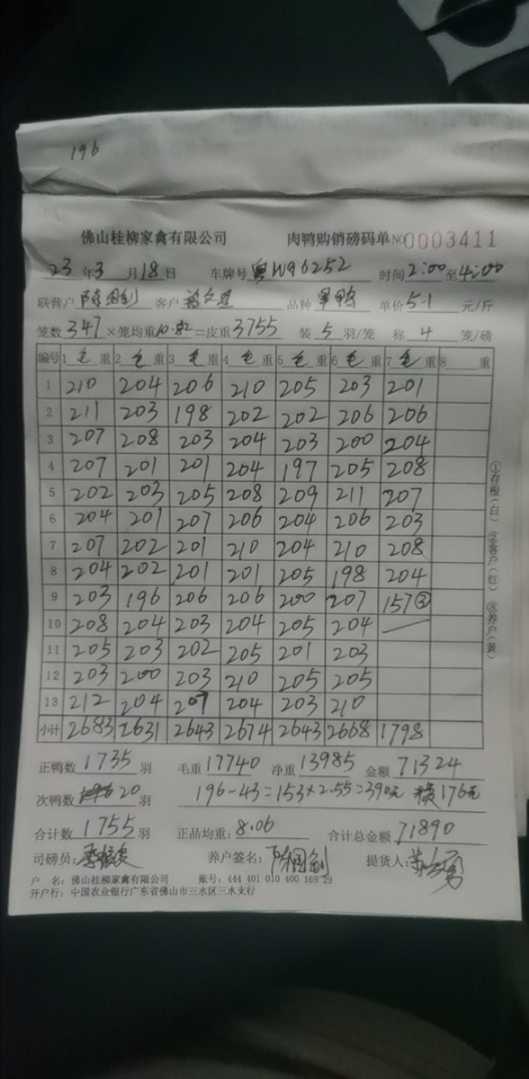 196
佛山桂柳家禽有限公司 肉鸭购销磅码单 NO 0003411
23 年 3 月 18 日 车牌号 粤W96252 时间 2:00 至 4:00
联营户 客户 品种 单鸭 单价 5.1 元/斤
笼数 347 ×笼均重 10.82 =皮重 3755 装 5 羽/笼 称 4 笼/磅
编号 1 毛 重 2 毛 重 3 毛 重 4 毛 重 5 毛 重 6 毛 重 7 毛 重 8 重
1 210 204 206 210 205 203 201
2 211 203 198 202 202 206 206
3 207 208 203 204 203 200 204
4 207 201 201 204 197 205 208
5 202 203 205 208 209 211 207
6 204 201 207 206 204 206 203
7 207 202 201 210 204 210 208
8 204 202 201 201 205 198 204
9 203 196 206 206 200 207 157③
10 208 204 203 204 205 204
11 205 203 202 205 201 203
12 203 200 203 210 205 205
13 212 204 207 204 203 210
小计 2683 2631 2643 2674 2643 2668 1798
正鸭数 1735 羽 毛重 17740 净重 13985 金额 71324
次鸭数 20 羽 196-43=153×2.55=390元 176元
合计数 1755 羽 正品均重: 8.06 合计总金额 71890
司磅员: 养户签名: 提货人:
户 名: 佛山桂柳家禽有限公司 账号: 444 401 010 400 169 29
开户行: 中国农业银行广东省佛山市三水区三水支行
①存根(白) ②客户(红) ③养户(黄)